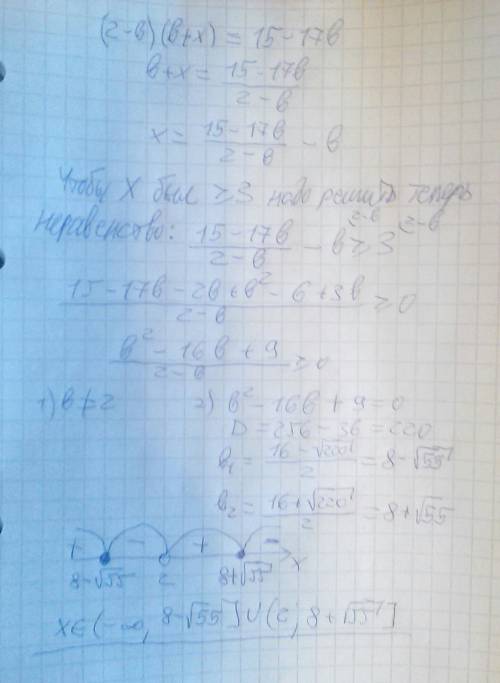 (2-в)(в+x) = 15-17в
в+x = \frac{15-17в}{2-в}
x = \frac{15-17в}{2-в} - в
Чтобы X был ≥3 надо решить теперь
неравенство: \frac{15-17в}{2-в} - в^{2-в} ≥ 3^{2-в}
\frac{15-17в-2в+в²-6+3в}{2-в} ≥ 0
\frac{в²-16в+9}{2-в} ≥ 0
1) в≠2 2) в²-16в+9=0
D=256-36=220
в₁ = \frac{16-\sqrt{220}}{2} = 8-√55
в₂ = \frac{16+\sqrt{220}}{2} = 8+√55
+ - + -
8-√55 2 8+√55 X
X∈(-∞; 8-√55]∪(2; 8+√55]